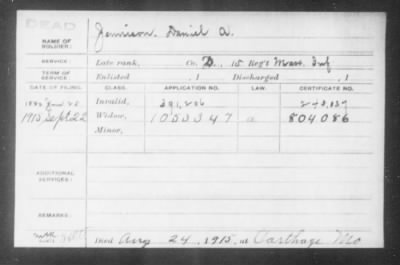 DEAD
NAME OF SOLDIER: Jennison, Daniel A.
SERVICE: Late rank, Co. D, 15 Reg't Mass. Inf
TERM OF SERVICE: Enlisted , 1 Discharged , 1
DATE OF FILING. CLASS. APPLICATION NO. LAW. CERTIFICATE NO.
1880 Invalid,
1915 Sept 22 Widow, 1053347 804086
Minor,
ADDITIONAL SERVICES:
REMARKS:
Died Aug 24, 1915, at Carthage Mo